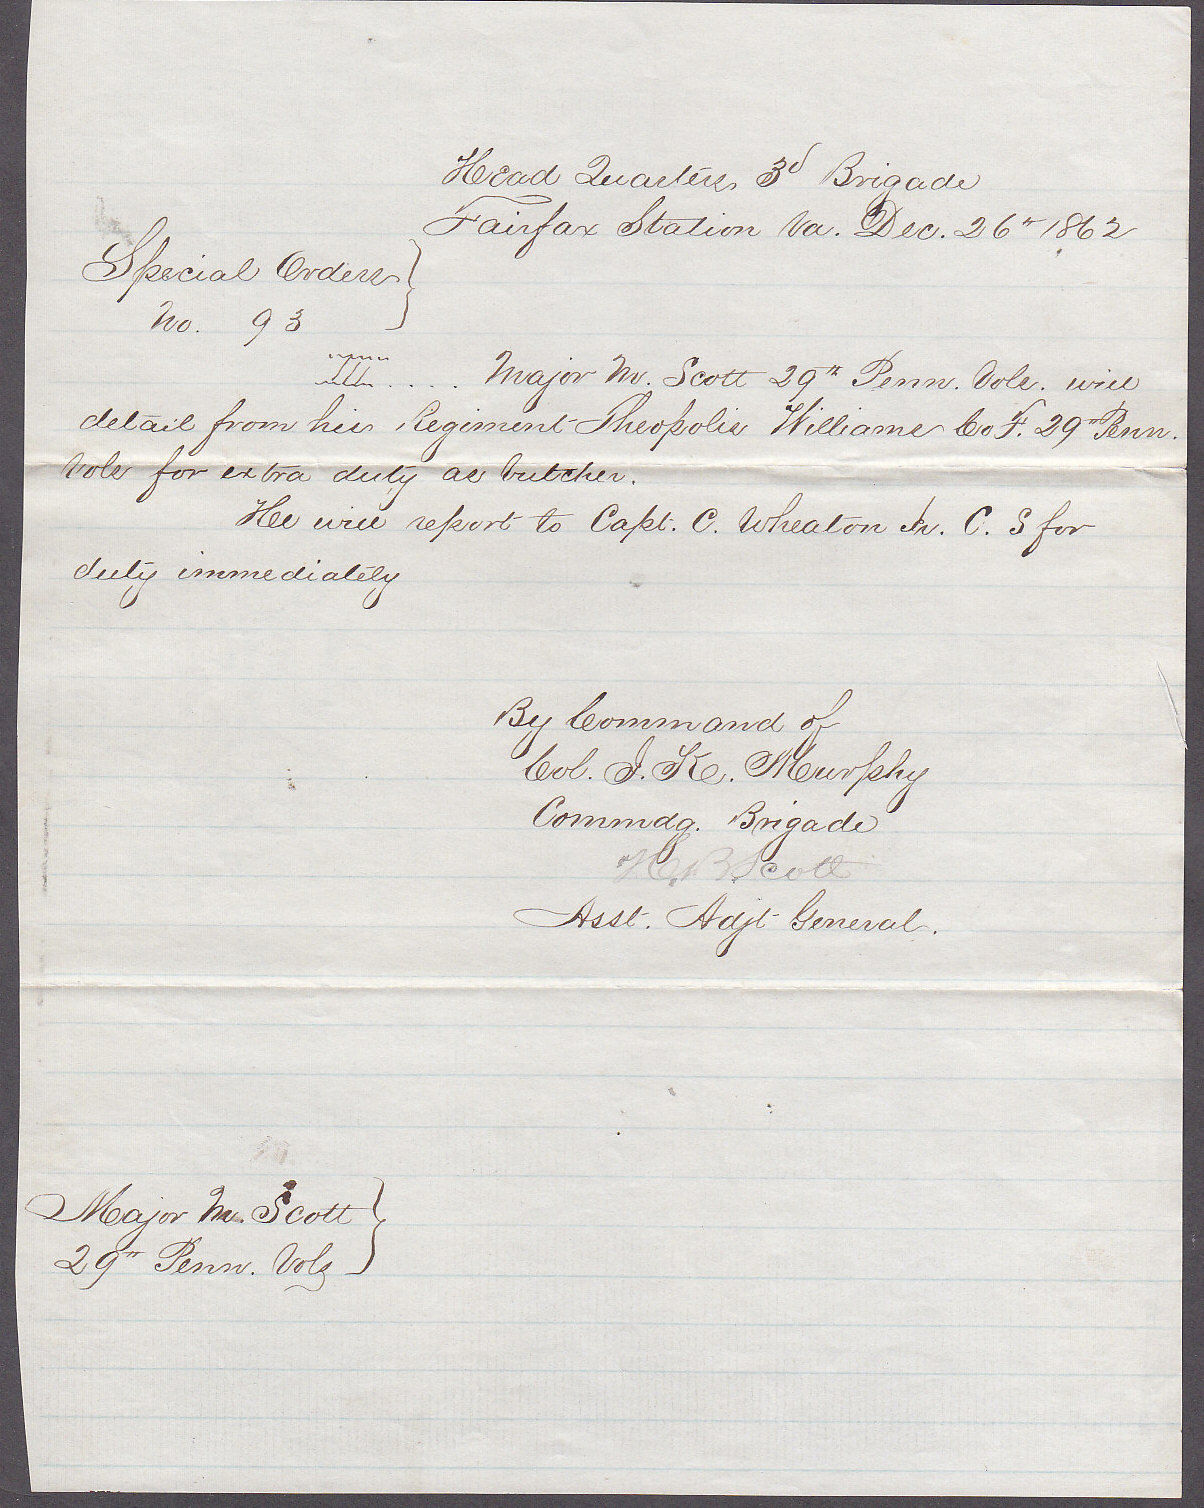 Head Quarters 3d Brigade
Fairfax Station Va. Dec. 26th 1862
Special Orders
No. 93
.... Major M. Scott 29th Penn. Vols. will
detail from his Regiment Theopolis Williams Co F. 29th Penn.
Vols for extra duty as butcher.
He will report to Capt. C. Wheaton Jr. C. S for
duty immediately
By Command of
Col. J. K. Murphy
Commdg. Brigade
H. B. Scott
Asst. Adjt General.
Major M. Scott
29th Penn. Vols